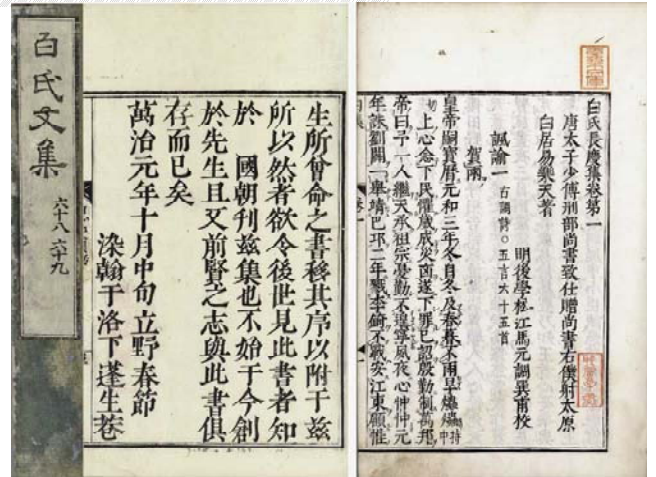 白氏文集
六十八 六十九
生所曾命之書移其序以附于茲
所以然者欲令後世見此書者知
於 國朝刊茲集也不始于今創
於先生且又前賢之志與此書俱
存而已矣
萬治元年十月中旬立野春節
染翰于洛下蓬生巷
白氏長慶集卷第一
唐太子少傅刑部尚書致仕贈尚書右僕射太原
白居易樂天著
明後學松江馬元調巽甫校
諷諭一 古調詩○五言六十五首
賀雨
皇帝嗣寶曆元和三年冬自冬及春暮不雨旱爞爞
上心念下民懼歲成災凶遂下罪己詔殷勤制萬邦
帝曰予一人繼天承祖宗憂勤不遑寧夙夜心忡忡元
年誅劉闢一舉靖巴邛二年戮李錡不戰安江東顧惟